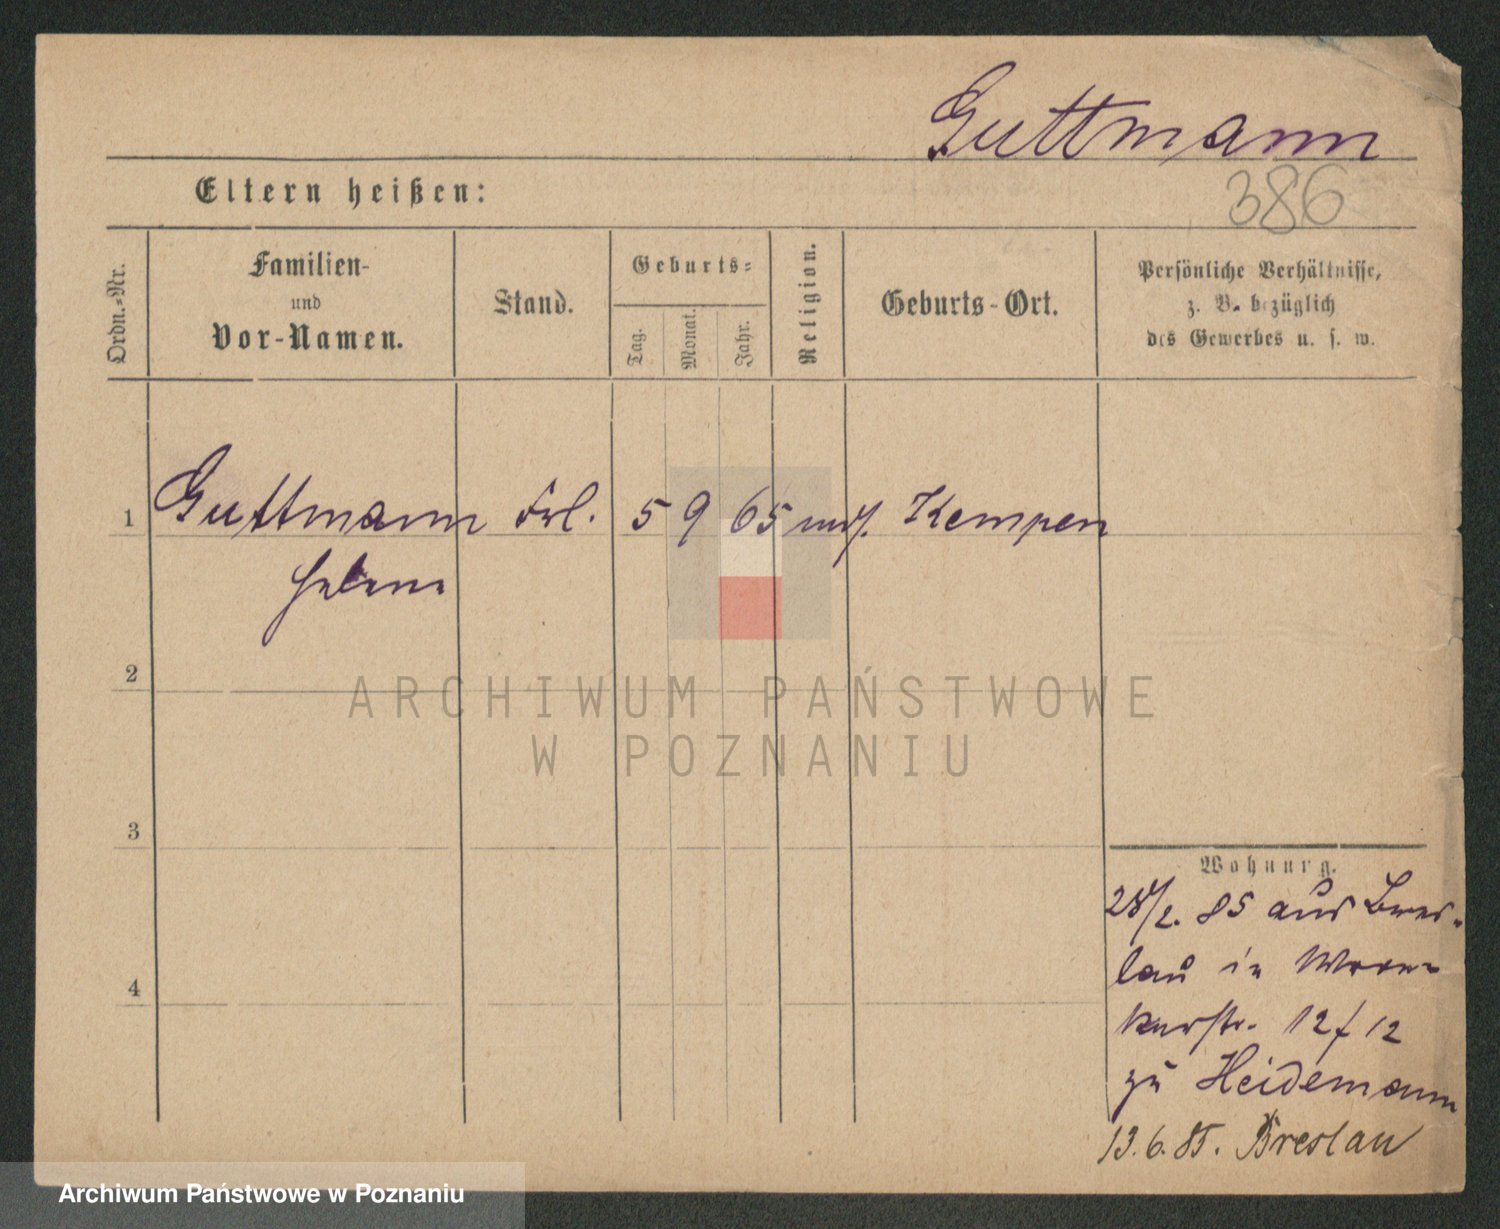 Guttmann
386
Eltern heißen:
Ordn.-Nr.
Familien-
und
Vor-Namen.
Stand.
Geburts-
Tag.
Monat.
Jahr.
Religion.
Geburts-Ort.
Persönliche Verhältnisse,
z. B. bezüglich
des Gewerbes u. s. w.
1 Guttmann Frl. 5 9 65 mos. Kempen
Helene
2
ARCHIWUM PAŃSTWOWE
W POZNANIU
3
Wohnung.
28/2. 85 aus Bres-
4
lau in
12/12
zu Heidemann
13.6.85. Breslau
Archiwum Państwowe w Poznaniu